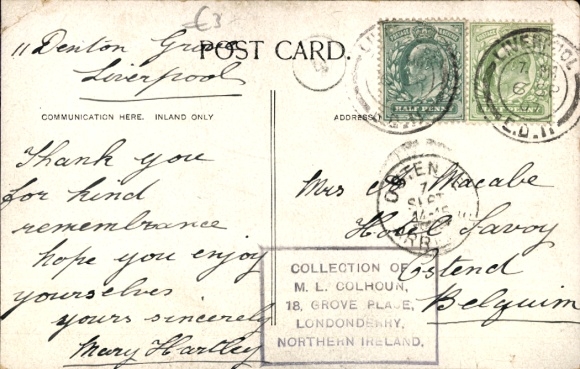 £3
11 Denton Grove
Liverpool
POST CARD.
COMMUNICATION HERE. INLAND ONLY
ADDRESS
Thank you
for kind
remembrance
hope you enjoy
yourselves
yours sincerely
Mary Hartley
HALF PENNY
LIVERPOOL
L.D.11
OSTEN
7
SEPT
Mrs Macabe
Hotel Savoy
Ostend
Belguim
COLLECTION OF
M. L. COLHOUN,
18, GROVE PLACE,
LONDONDERRY,
NORTHERN IRELAND.